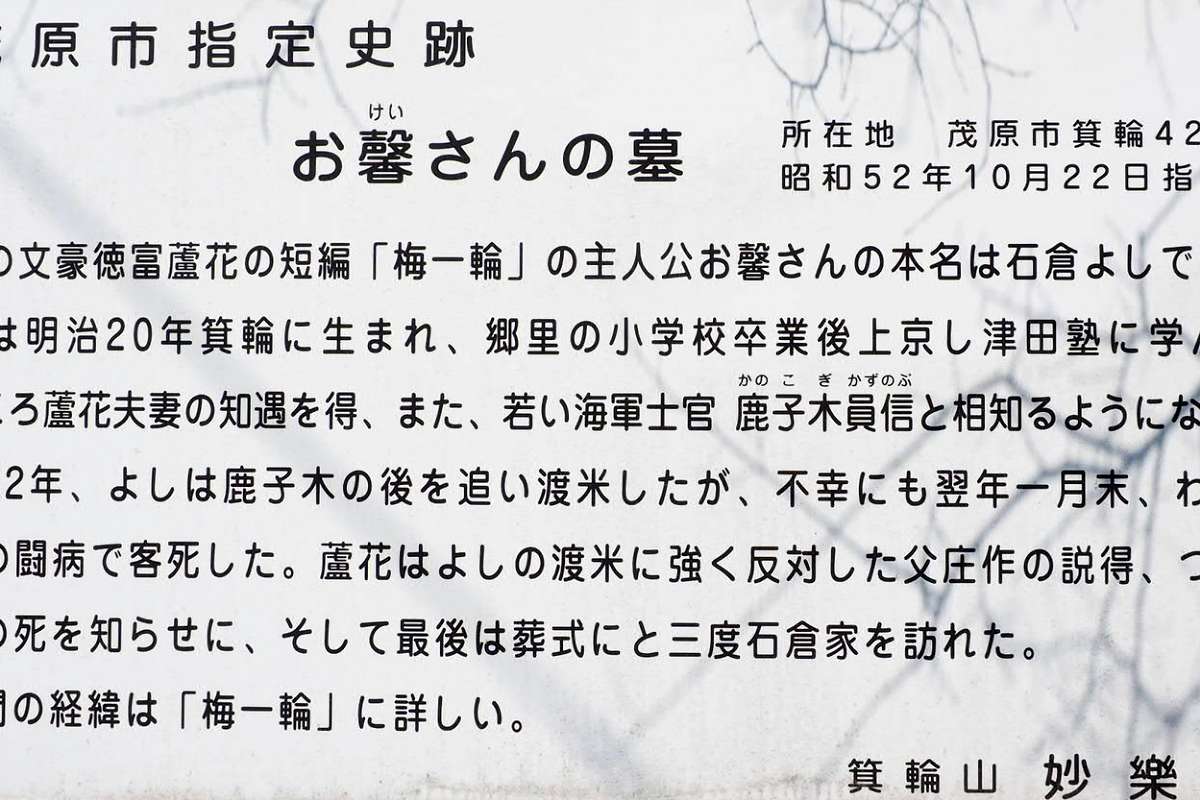 原市指定史跡
けい
お馨さんの墓
所在地 茂原市箕輪42
昭和52年10月22日指
の文豪徳富蘆花の短編「梅一輪」の主人公お馨さんの本名は石倉よしで
は明治20年箕輪に生まれ、郷里の小学校卒業後上京し津田塾に学
ころ蘆花夫妻の知遇を得、また、若い海軍士官 鹿子木員信と相知るようにな
かのこぎかずのぶ
2年、よしは鹿子木の後を追い渡米したが、不幸にも翌年一月末、わ
の闘病で客死した。蘆花はよしの渡米に強く反対した父庄作の説得、つ
の死を知らせに、そして最後は葬式にと三度石倉家を訪れた。
の経緯は「梅一輪」に詳しい。
箕輪山 妙樂